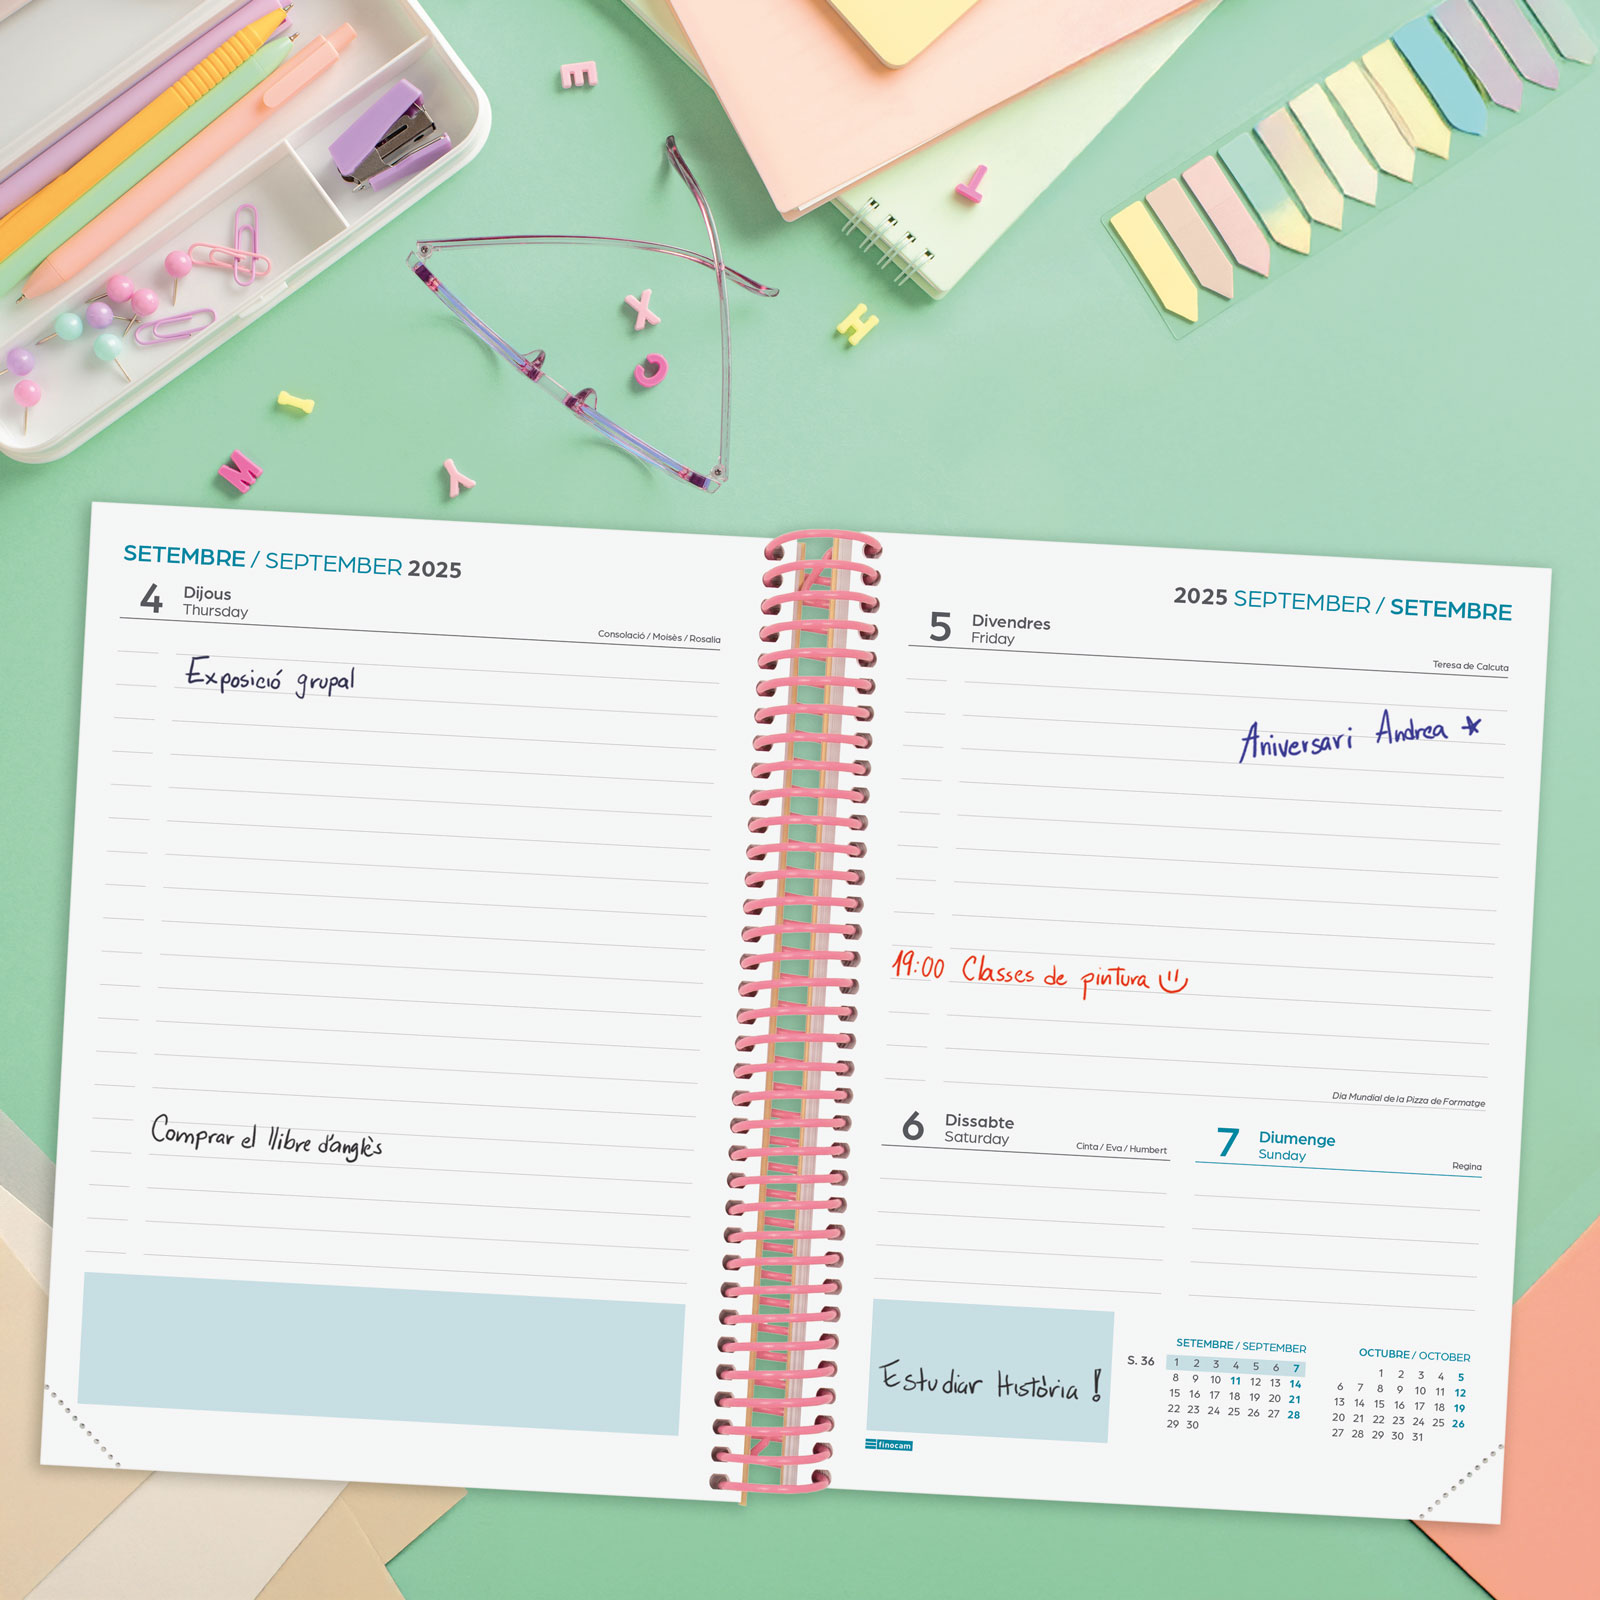 E
T
X
H
C
I
M
Y
SETEMBRE / SEPTEMBER 2025
4 Dijous
Thursday
Consolació / Moisès / Rosalia
Exposició grupal
Comprar el llibre d'anglès
2025 SEPTEMBER / SETEMBRE
5 Divendres
Friday
Teresa de Calcuta
Aniversari Andrea
19:00 Classes de pintura
Dia Mundial de la Pizza de Formatge
6 Dissabte
Saturday
Cinta / Eva / Humbert
7 Diumenge
Sunday
Regina
Estudiar Història !
finocam
SETEMBRE / SEPTEMBER
S. 36 1 2 3 4 5 6 7
8 9 10 11 12 13 14
15 16 17 18 19 20 21
22 23 24 25 26 27 28
29 30
OCTUBRE / OCTOBER
1 2 3 4 5
6 7 8 9 10 11 12
13 14 15 16 17 18 19
20 21 22 23 24 25 26
27 28 29 30 31